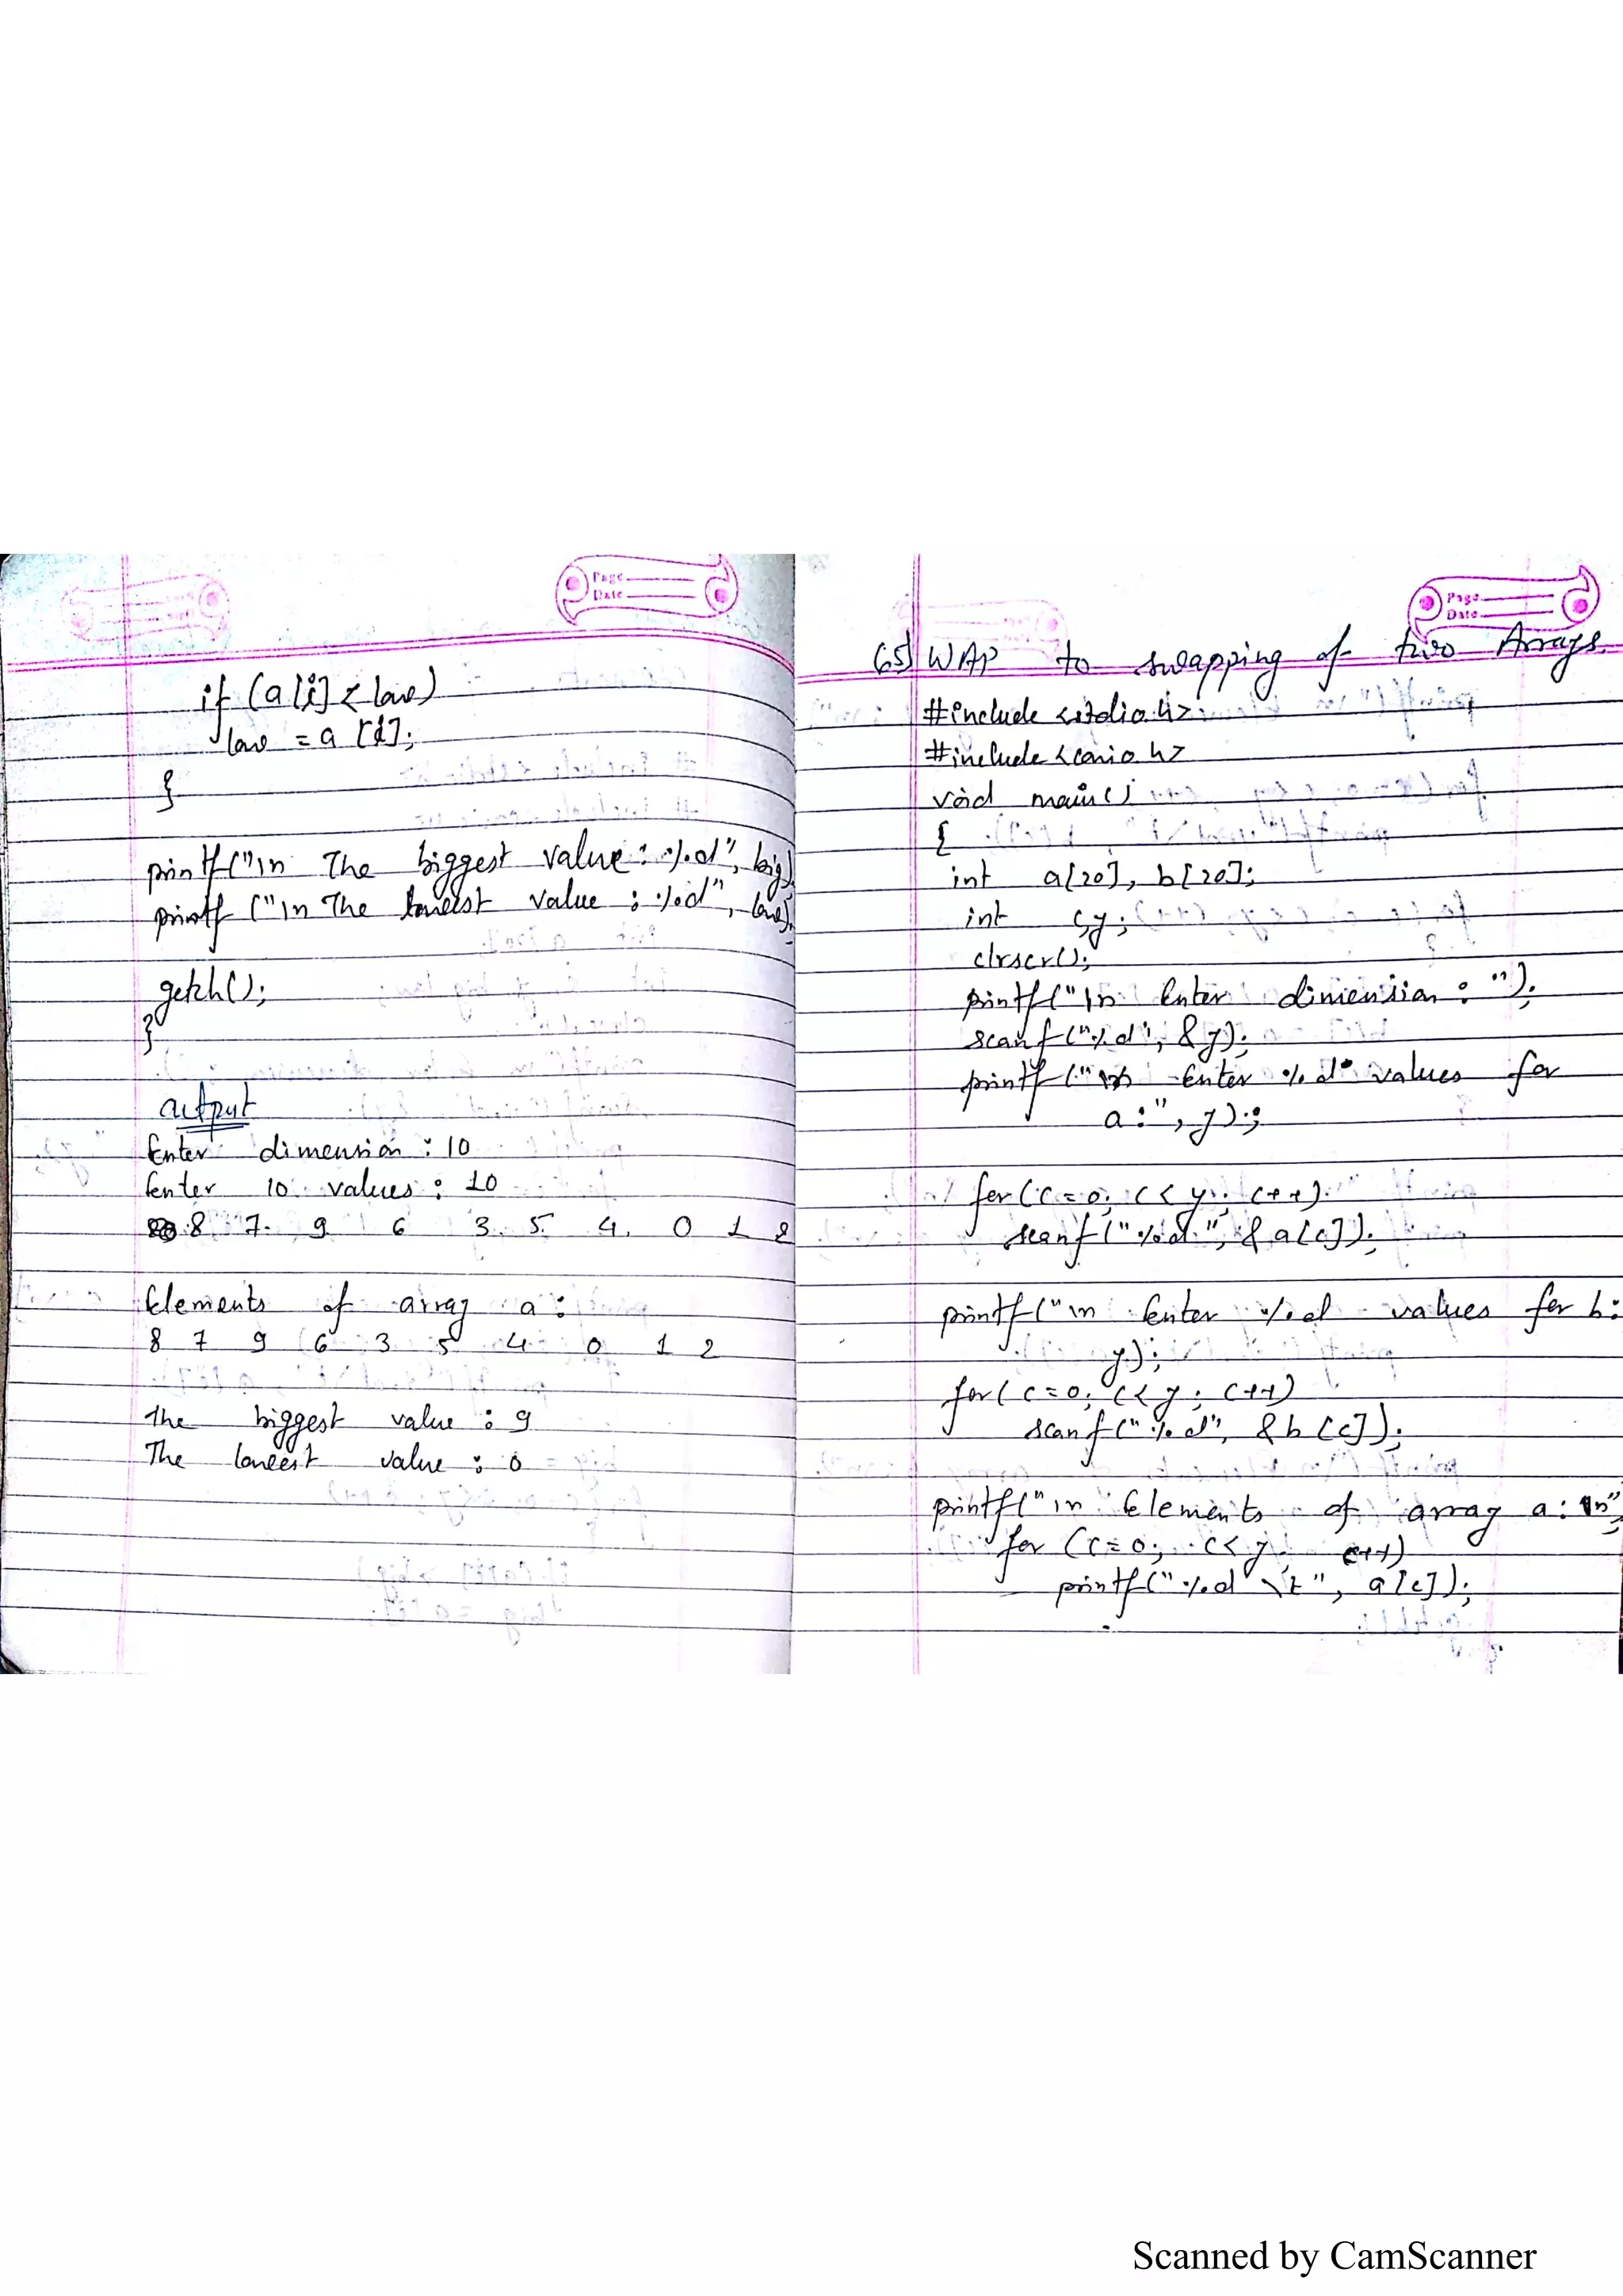 Page
Date
if (a[i] < low)
low = a[i];
}
printf("\n The biggest value : %d", big);
printf ("\n The lowest value : %d", low);
getch();
}
output
Enter dimension : 10
Enter 10 values : 10
8 7 9 6 3 5 4 0 1 2
Elements of array a :
8 7 9 6 3 5 4 0 1 2
The biggest value : 9
The lowest value : 0
Page
Date
65) WAP to swapping of two Arrays.
#include <stdio.h>
#include <conio.h>
void main()
{
int a[20], b[20];
int c,y;
clrscr();
printf("\n Enter dimension : ");
scanf("%d", &y);
printf("\n Enter %d values for
a:", y);
for(c=0; c<y; c++)
scanf("%d", &a[c]);
printf("\n Enter %d values for b:
y);
for(c=0; c<y; c++)
scanf("%d", &b[c]);
printf("\n Elements of array a: \n"
for (c=0; c<y; c++)
printf("%d \t", a[c]);
Scanned by CamScanner